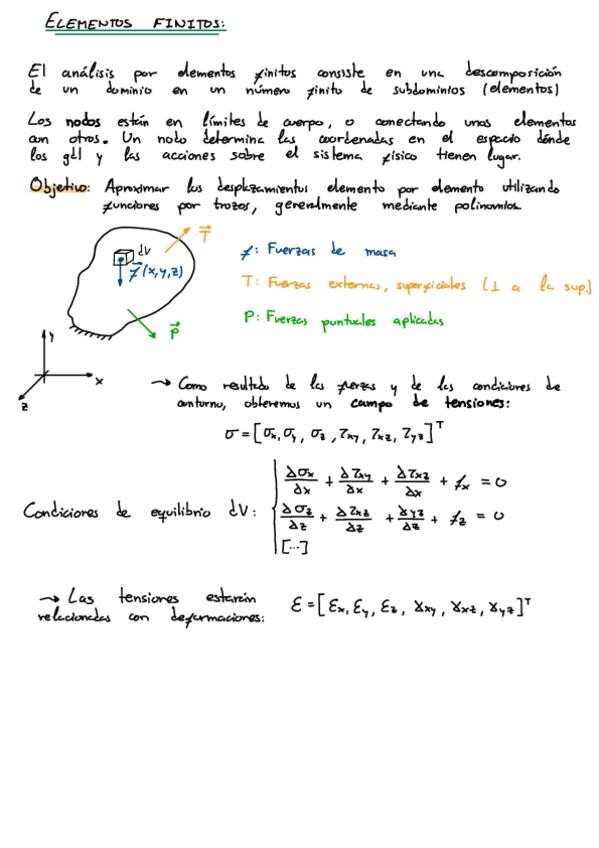 ELEMENTOS FINITOS:
El análisis por elementos finitos consiste en una descomposición
de un dominio en un número finito de subdominios (elementos)
Los nodos están en límites de cuerpo, o conectando unos elementos
con otros. Un nodo determina las coordenadas en el espacio dónde
los gdl y las acciones sobre el sistema físico tienen lugar.
Objetivo: Aproximar los desplazamientos elemento por elemento utilizando
funciones por trozos, generalmente mediante polinomios.
dv
T⃗
f⃗(x,y,z)
P⃗
y
x
z
f: Fuerzas de masa
T: Fuerzas externas, superficiales (⊥ a la sup)
P: Fuerzas puntuales aplicadas
→ Como resultado de las fuerzas y de las condiciones de
contorno, obtenemos un campo de tensiones:
σ = [σx, σy, σz, τxy, τxz, τyz]ᵀ
Condiciones de equilibrio dV:
Δσx/Δx + Δτxy/Δx + Δτxz/Δx + fx = 0
Δσz/Δz + Δτxz/Δz + Δyz/Δz + fz = 0
[...]
→ Las tensiones estarán
relacionadas con deformaciones:
ε = [εx, εy, εz, γxy, γxz, γyz]ᵀ